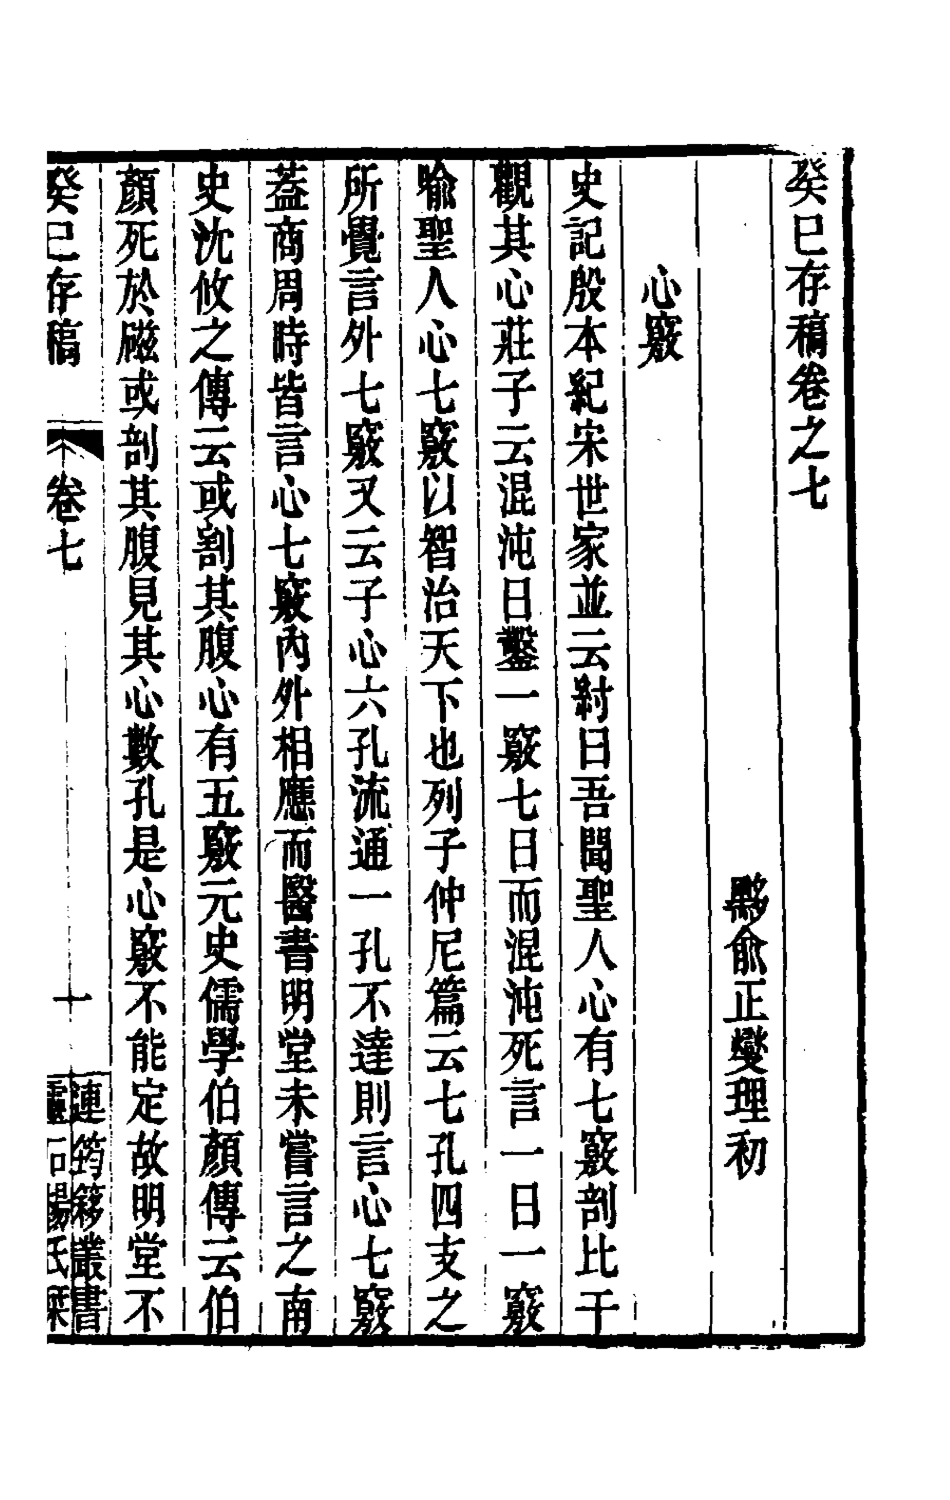 癸巳存稿卷之七
黟俞正燮理初
心竅
史記殷本紀宋世家並云紂曰吾聞聖人心有七竅剖比干
觀其心莊子云混沌日鑿一竅七日而混沌死言一日一竅
喻聖人心七竅以智治天下也列子仲尼篇云七孔四支之
所覺言外七竅又云子心六孔流通一孔不達則言心七竅
蓋商周時皆言心七竅內外相應而醫書明堂未嘗言之南
史沈攸之傳云或割其腹心有五竅元史儒學伯顏傳云伯
顏死於磁或剖其腹見其心數孔是心竅不能定故明堂不
癸巳存稿
卷七
十
連筠簃叢書
靈石楊氏栞